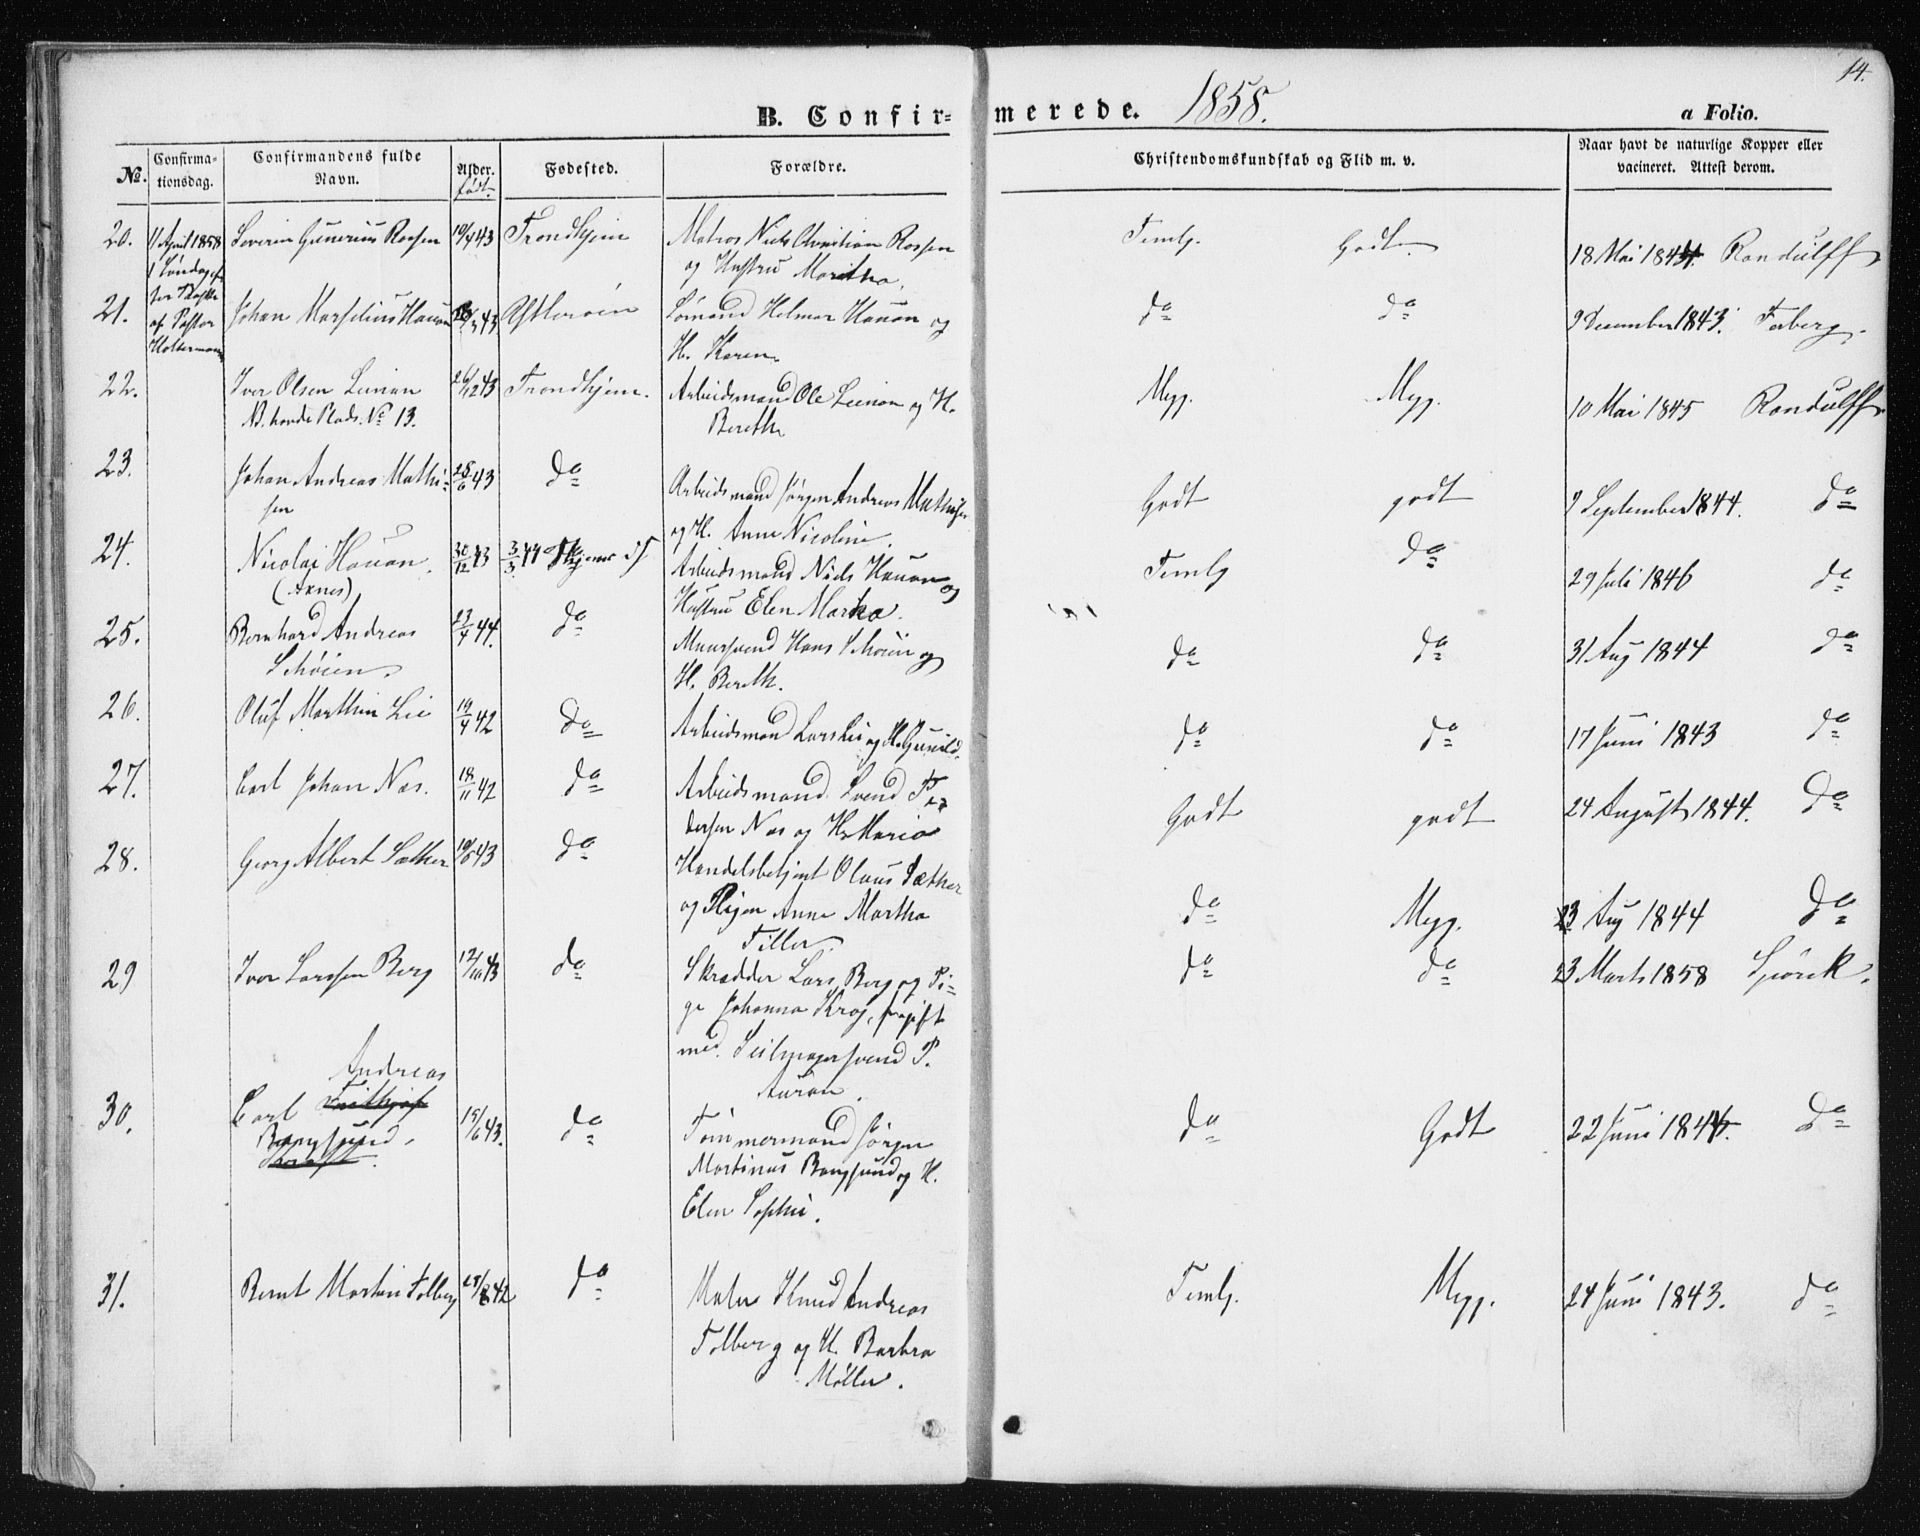 14.
B. Confir-merede. 1858. a Folio.
No. Confirma-tionsdag. Confirmandens fulde Navn. Alder. født Fødested. Forældre. Christendomskundskab og Flid m. v. Naar havt de naturlige Kopper eller vacineret. Attest derom.
20. 11 April 1858 Severin Gunerius Rossen 10/4 43 Trondhjem Matros Niels Christian Rossen Temlg. Godt. 18 Mai 1844 Randulff
1 Søndag ef- og Hustru Maritha.
ter Paaske
21. af Pastor Johan Marselius Hauan /3 43 Sømand Helmer Hauan og do do 9 December 1843. Faberg.
Holtermann H. Karen.
22. Iver Olsen Leinan 26/12 43 Trondhjem. Arbeidsmand Ole Leinan og H. Megg. Megg. 10 Mai 1845 Randulff.
NB. havde Plads No 13. Bereth
23. Johan Andreas Mathi- 28/6 43 do Arbeidsmand Jørgen Andreas Mathisen Godt godt 9 September 1844. do
sen og H. Anne Nicoline.
24. Nicolai Hauan 30/12 43 3/3 44 Arbeidsmand Niels Hauan og Temlg do 29 Juli 1846 do
(Arnes) Hustru Elen Marta.
25. Bernhard Andreas 23/4 44. do Muursvend Hans Schøien og do do 31 Aug 1844 do
Schøien. H. Bereth.
26. Oluf Marthin Lie 19/4 42 do Arbeidsmand Lars Lie og H. Gunild. do do 17 Juni 1843 do
27. Carl Johan Næs. 18/11 42 do Arbeidsmand Svend Pe- Godt godt 24 August 1844. do
dersen Næs og H. Maria
28. Georg Albert Sæther 10/5 43 do Handelsbetjent Olaus Sæther do Megg. 23 Aug 1844 do
og Pigen Anne Martha
Tiller.
29 Iver Larssen Berg 12/10 43 do Skrædder Lars Berg og Pi- do do 23 Marts 1858 Sjørck.
ge Johanna Krog, fragift
med Seilmagersvend P.
Auran.
Andreas
30. Carl Frithjof 15/6 43. do Tømmermand Jørgen do Godt 22 Juni 1844. do
Bangsund. Martinus Bangsund og H.
Elen Sophie.
31. Bernt Martin Folberg 25/8 42 do Maler Knud Andreas Temlg. Megg. 24 Juni 1843. do
Folberg og H. Barbra
Møller.